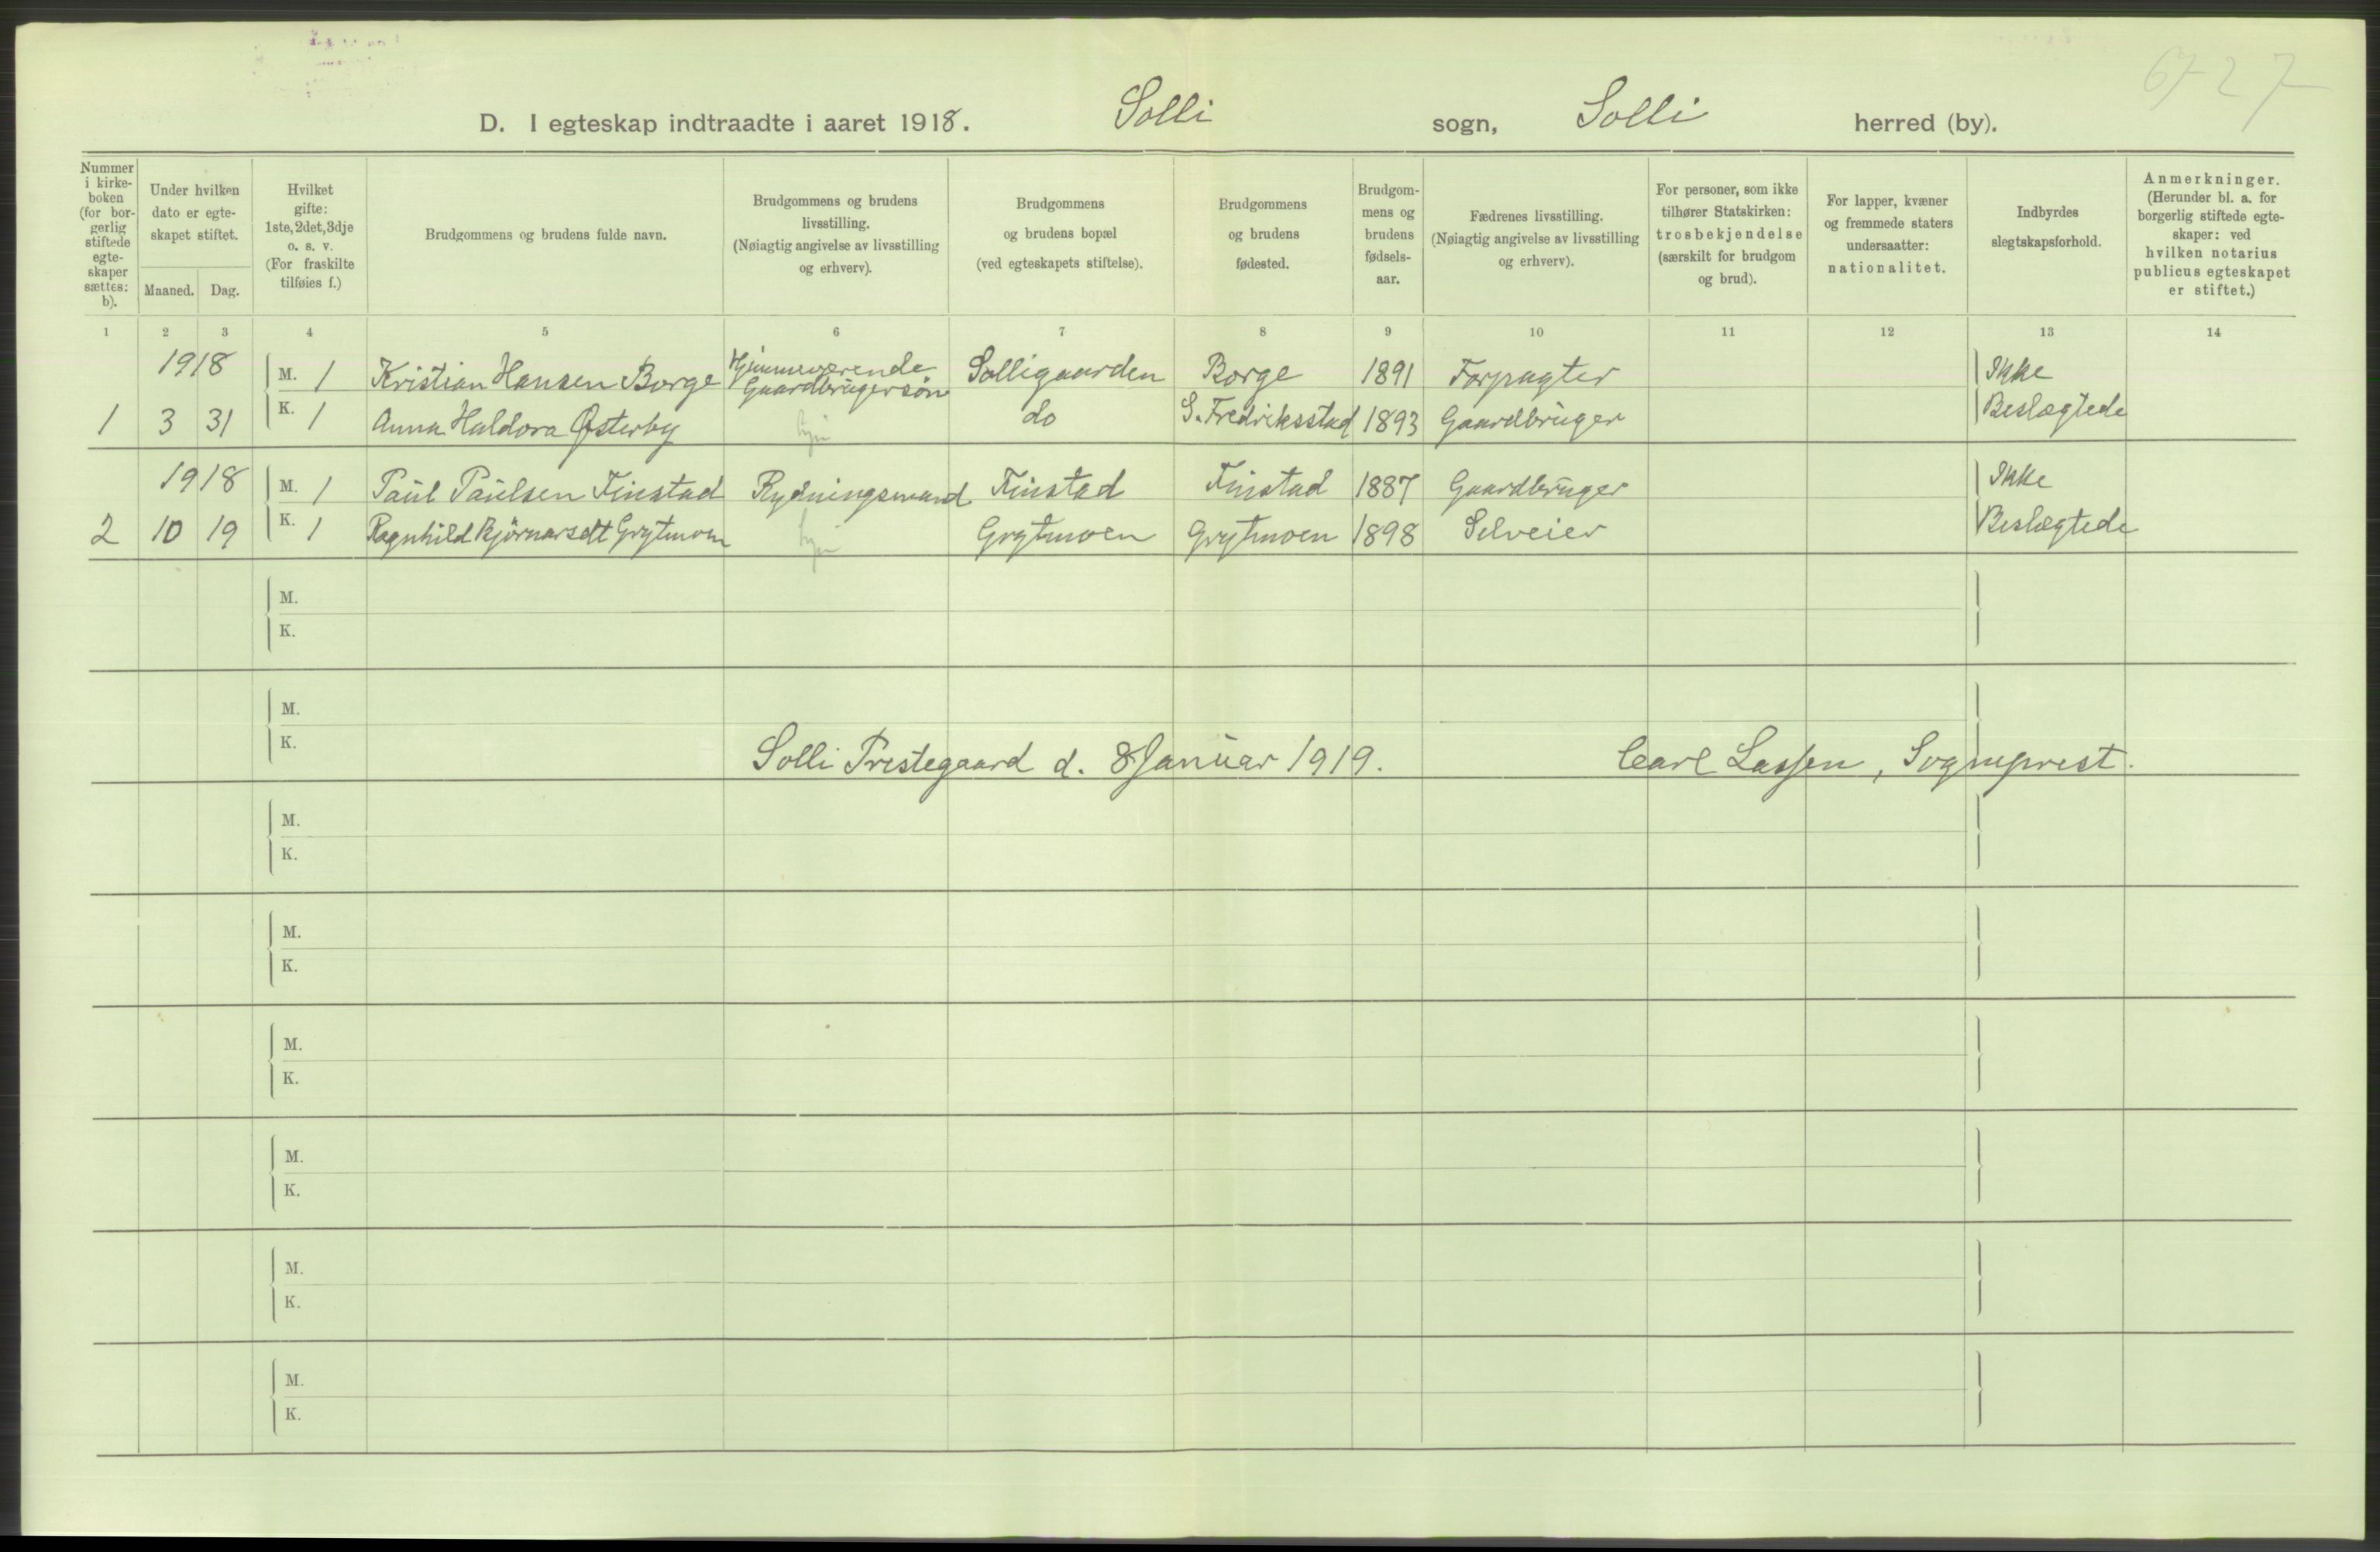 67-27
D. I egteskap indtraadte i aaret 1918. Solli sogn, Solli herred (by).
Nummer i kirke-boken (for bor-gerlig stiftede egte-skaper sættes: b).
Under hvilken dato er egte-skapet stiftet.
Maaned. Dag.
Hvilket gifte: 1ste, 2det, 3dje o. s. v. (For fraskilte tilføies f.)
Brudgommens og brudens fulde navn.
Brudgommens og brudens livsstilling. (Nøiagtig angivelse av livsstilling og erhverv).
Brudgommens og brudens bopæl (ved egteskapets stiftelse).
Brudgommens og brudens fødested.
Brudgom-mens og brudens fødsels-aar.
Fædrenes livsstilling. (Nøiagtig angivelse av livsstilling og erhverv).
For personer, som ikke tilhører Statskirken: trosbekjendelse (særskilt for brudgom og brud).
For lapper, kvæner og fremmede staters undersaatter: nationalitet.
Indbyrdes slegtskapsforhold.
Anmerkninger. (Herunder bl. a. for borgerlig stiftede egte-skaper: ved hvilken notarius publicus egteskapet er stiftet.)
1 2 3 4 5 6 7 8 9 10 11 12 13 14
1918 M. 1 Kristian Hansen Borge Hjemmeværende Gaardbrugersøn Solligaarden Borge 1891 Forpagter Ikke
1 3 31 K. 1 Anna Haldora Østerby do G. Fredriksstad 1893 Gaardbruger Beslægtede
1918 M. 1 Paul Paulsen Finstad Rydningsmand Finstad Finstad 1887 Gaardbruger Ikke
2 10 19 K. 1 Ragnhild Bjørnarsdtt Grytmoen Grytmoen Grytmoen 1898 Selveier Beslægtede
M.
K.
M.
K.
Solli Prestegaard d. 8 Januar 1919. Carl Lassen, Sogneprest.
M.
K.
M.
K.
M.
K.
M.
K.
M.
K.
M.
K.